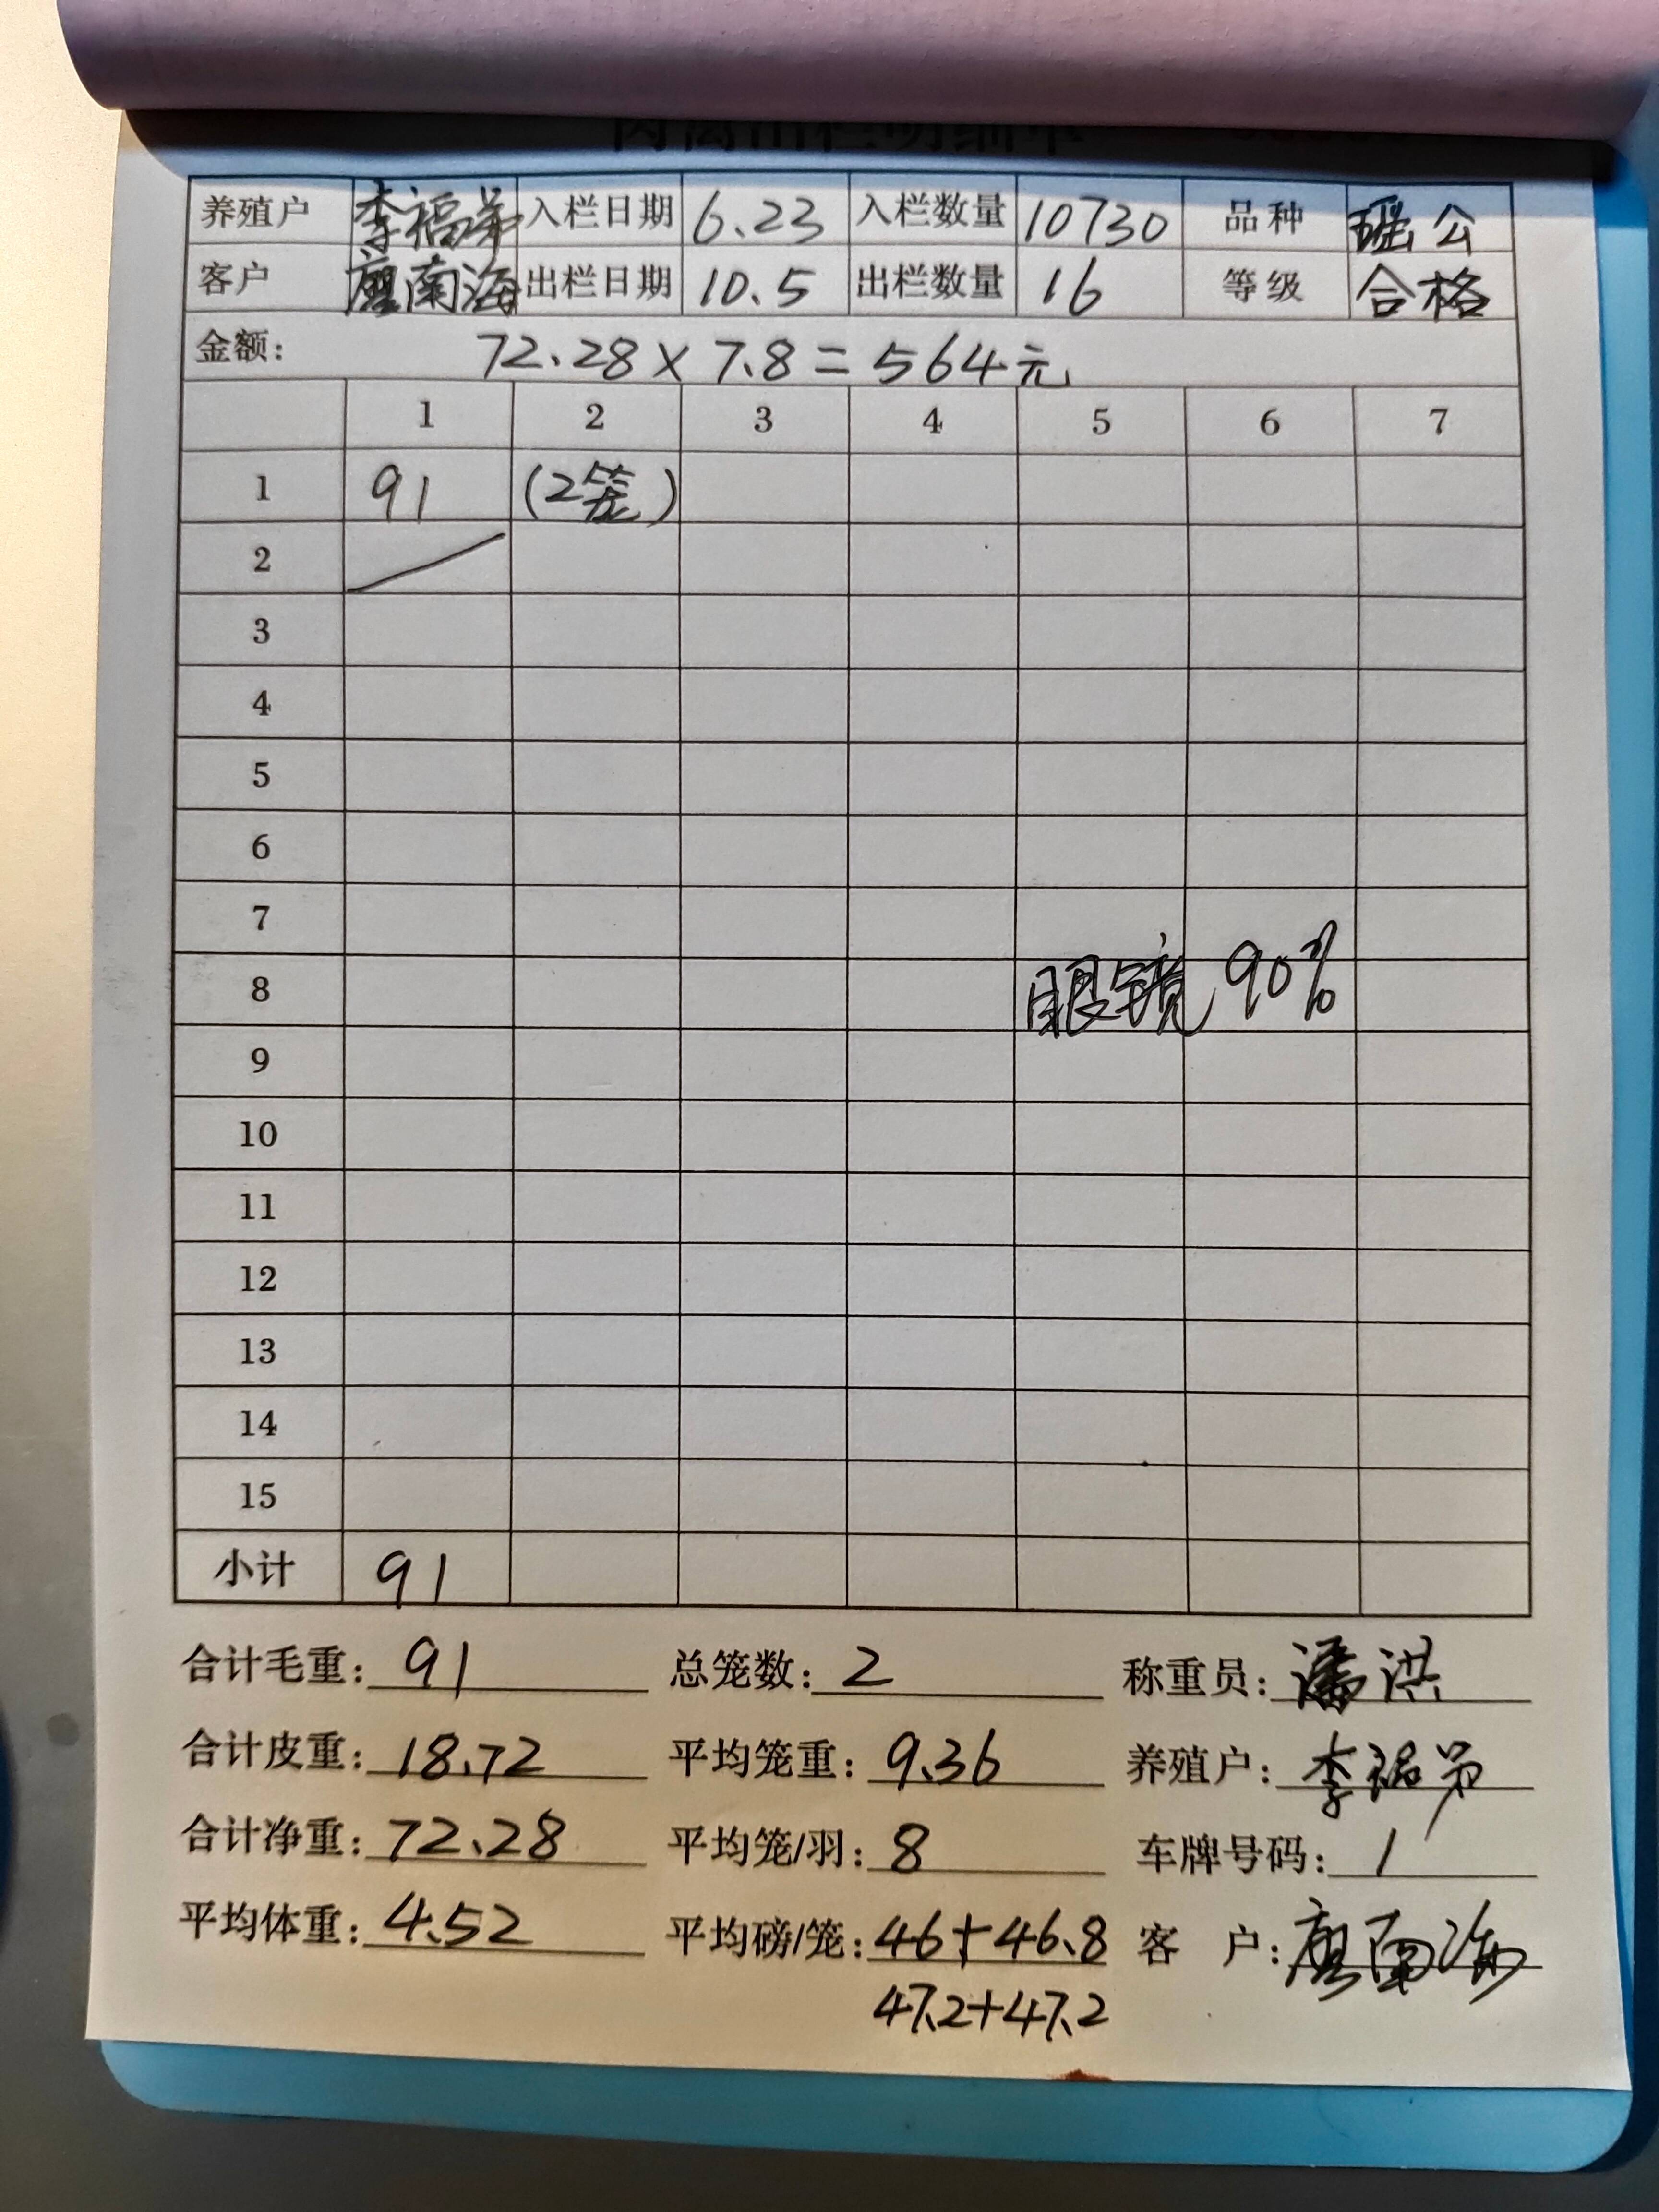 肉禽出栏明细单
养殖户 李福弟 入栏日期 6.23 入栏数量 10730 品种 瑶公
客户 廖南海 出栏日期 10.5 出栏数量 16 等级 合格
金额: 72.28×7.8=564元
1 2 3 4 5 6 7
1 91 (2笼)
2
3
4
5
6
7
8 眼镜90%
9
10
11
12
13
14
15
小计 91
合计毛重: 91 总笼数: 2 称重员: 潘洪
合计皮重: 18.72 平均笼重: 9.36 养殖户: 李福弟
合计净重: 72.28 平均笼/羽: 8 车牌号码: /
平均体重: 4.52 平均磅/笼: 46+46.8 客 户: 廖南海
47.2+47.2